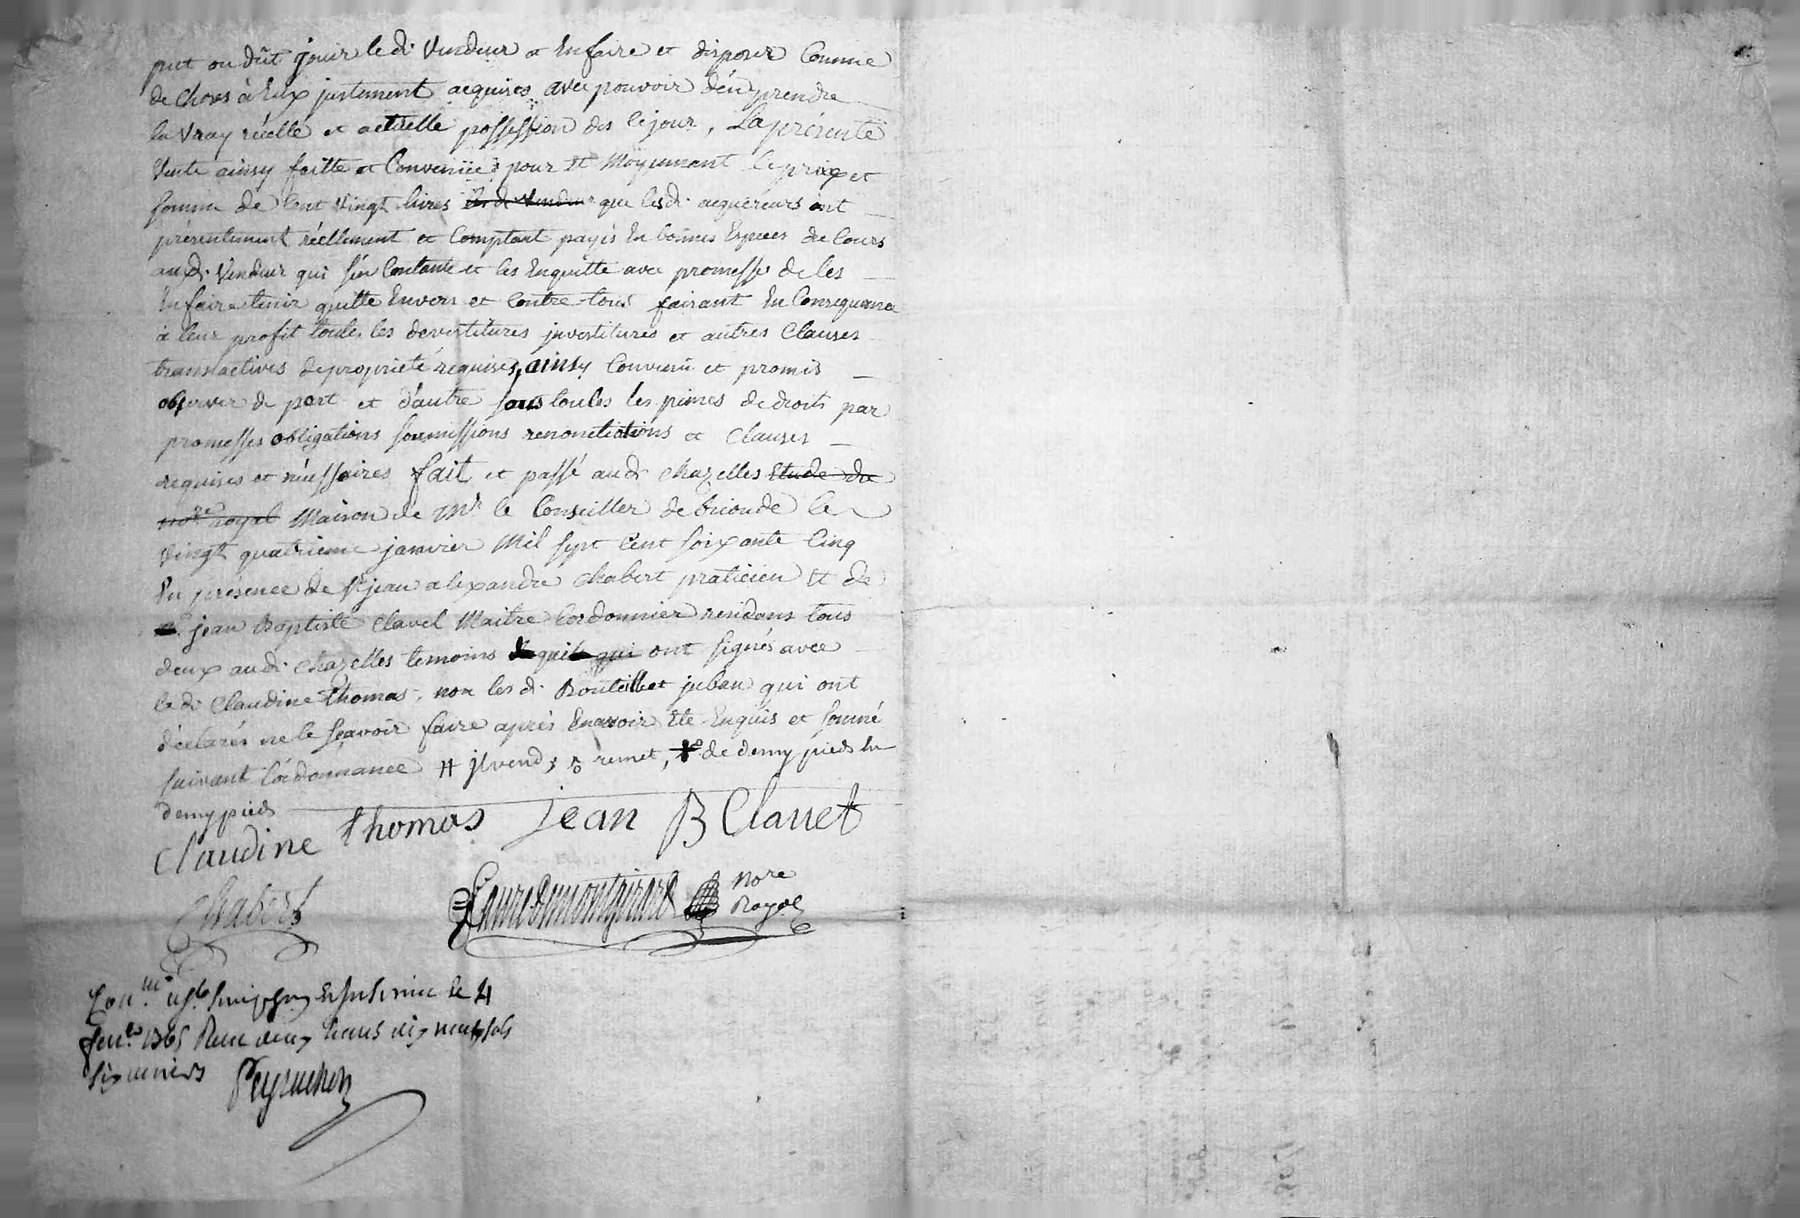 put ou dût jouir le di vendeur et en faire et disposer Comme
de choses à Eux justement acquises avec pouvoir d'en prendre
la vray réelle et actuelle possession des ce jour, La présente
vente ainsy faitte et Convenüe pour et Moyennant le prix et
somme de Cent vingt livres que lesdi. acquéreurs ont
présentement réellement et Comptant payés en bonnes Espèces de Cours
audi. vendeur qui s'en Contante et les Enquitte avec promesse de les
en faire tenir quitte Envers et Contre tous faisant En Consequence
à leur profit toutes les devestitures jnvestitures et autres Clauses
translactives de propriété requises, ainsy Convenu et promis
observer de part et d'autre sous toutes les peines de droits par
promesses obligations soumissions renonciations et Clauses
requises et nécessaires fait et passé audi. chazelles Etude du
nore royal Maison de Mr le Conseiller de brioude le
vingt quatrieme janvier Mil sept Cent soixante Cinq
En présence de Sr jean alexandre chabert praticien et de
jean Baptiste Clavel Maitre Cordonnier residans tous
deux audi. chazelles temoins qui ont signés avec
la di Claudine thomas, non les di. Bouteillet juban qui ont
déclarés ne le sçavoir faire après En avoir Eté Enquis et sommé
suivant l'ordonnance # jl vend, remet, de demy pieds
demy pieds
Claudine thomas jean B Clauet
Chabert
nore
Royal
le 4
1765 livres dix neuf sols
six deniers